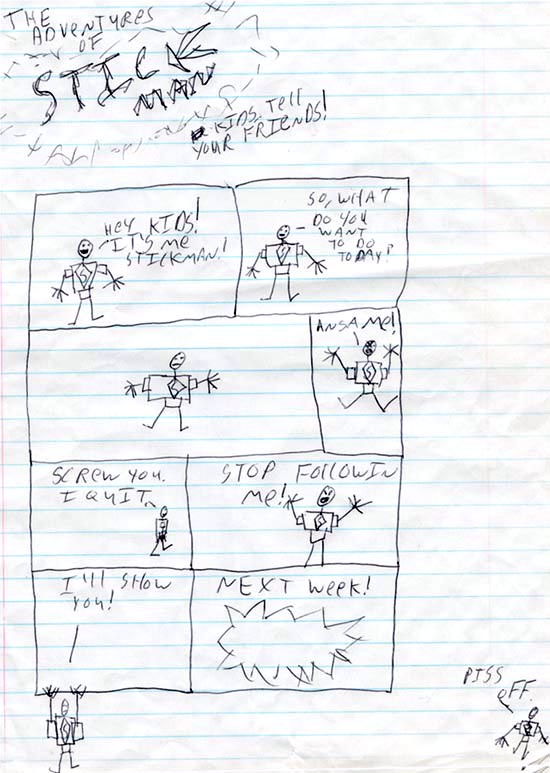 THE
ADVENTURES
OF
STICK
MAN
KIDS, TELL
YOUR FRIENDS!
HEY KIDS!
IT'S ME
STICKMAN!
SO, WHAT
DO YOU
WANT
TO DO
TODAY?
ANSA ME!
SCREW YOU.
I QUIT.
STOP FOLLOWIN
ME!
I'LL SHOW
YOU!
NEXT WEEK!
PISS
OFF.